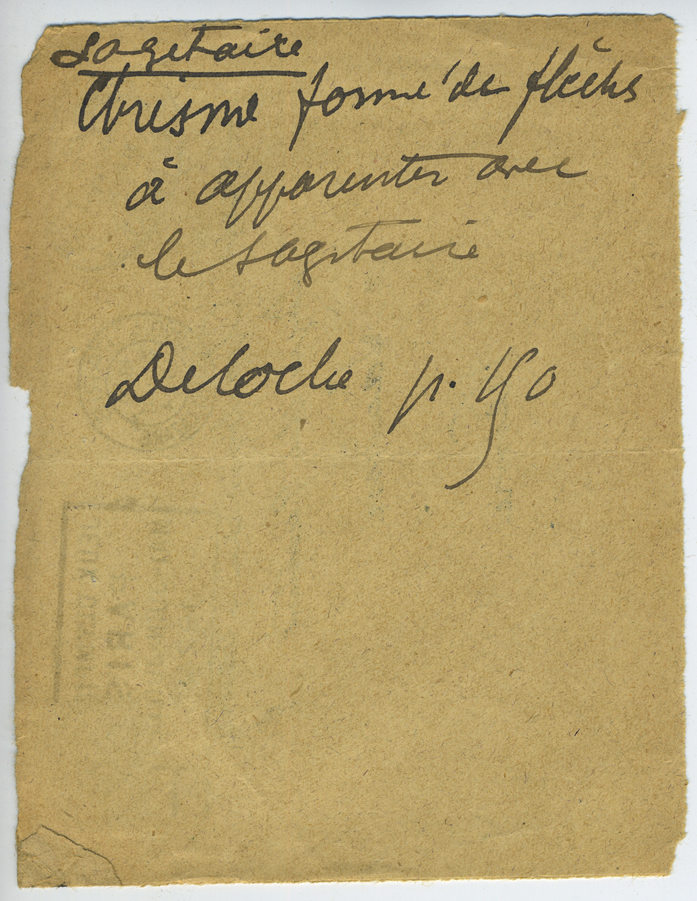 Sagitaire
Chrisme formé de flèches
à apparenter avec
le sagitaire
Deloche p.